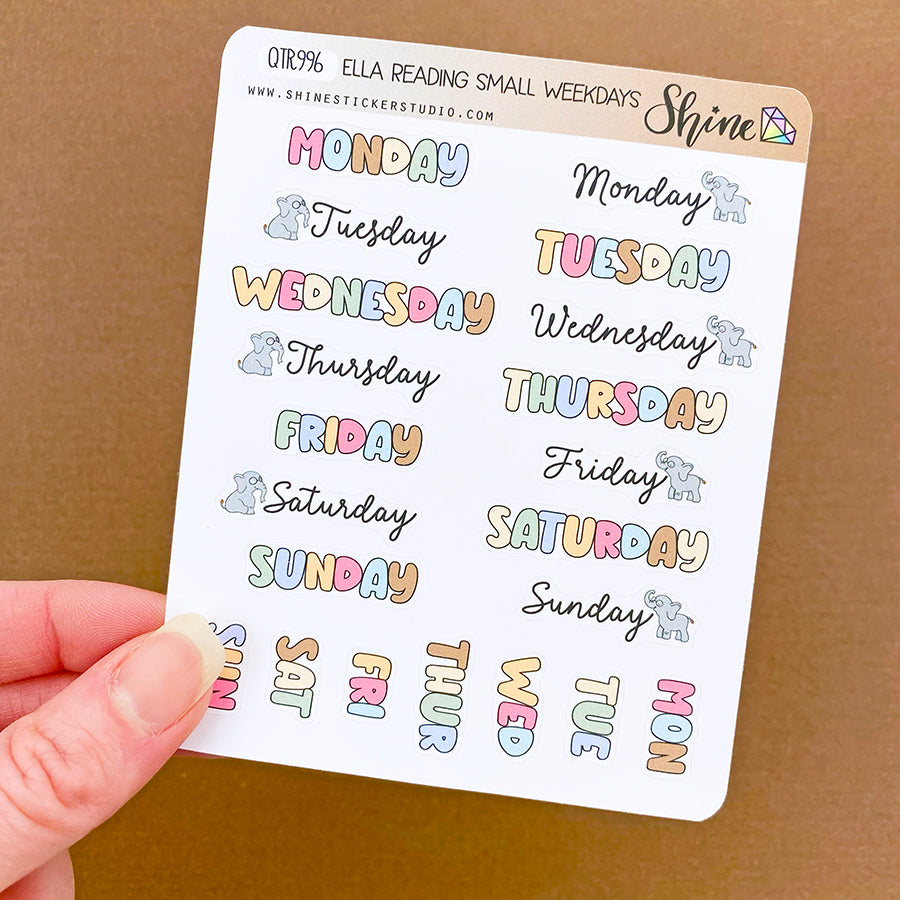 QTR996 ELLA READING SMALL WEEKDAYS Shine
WWW.SHINESTICKERSTUDIO.COM
MONDAY
Monday
Tuesday
TUESDAY
WEDNESDAY
Wednesday
Thursday
THURSDAY
FRIDAY
Friday
Saturday
SATURDAY
SUNDAY
Sunday
SUN
SAT
FRI
THUR
WED
TUE
MON